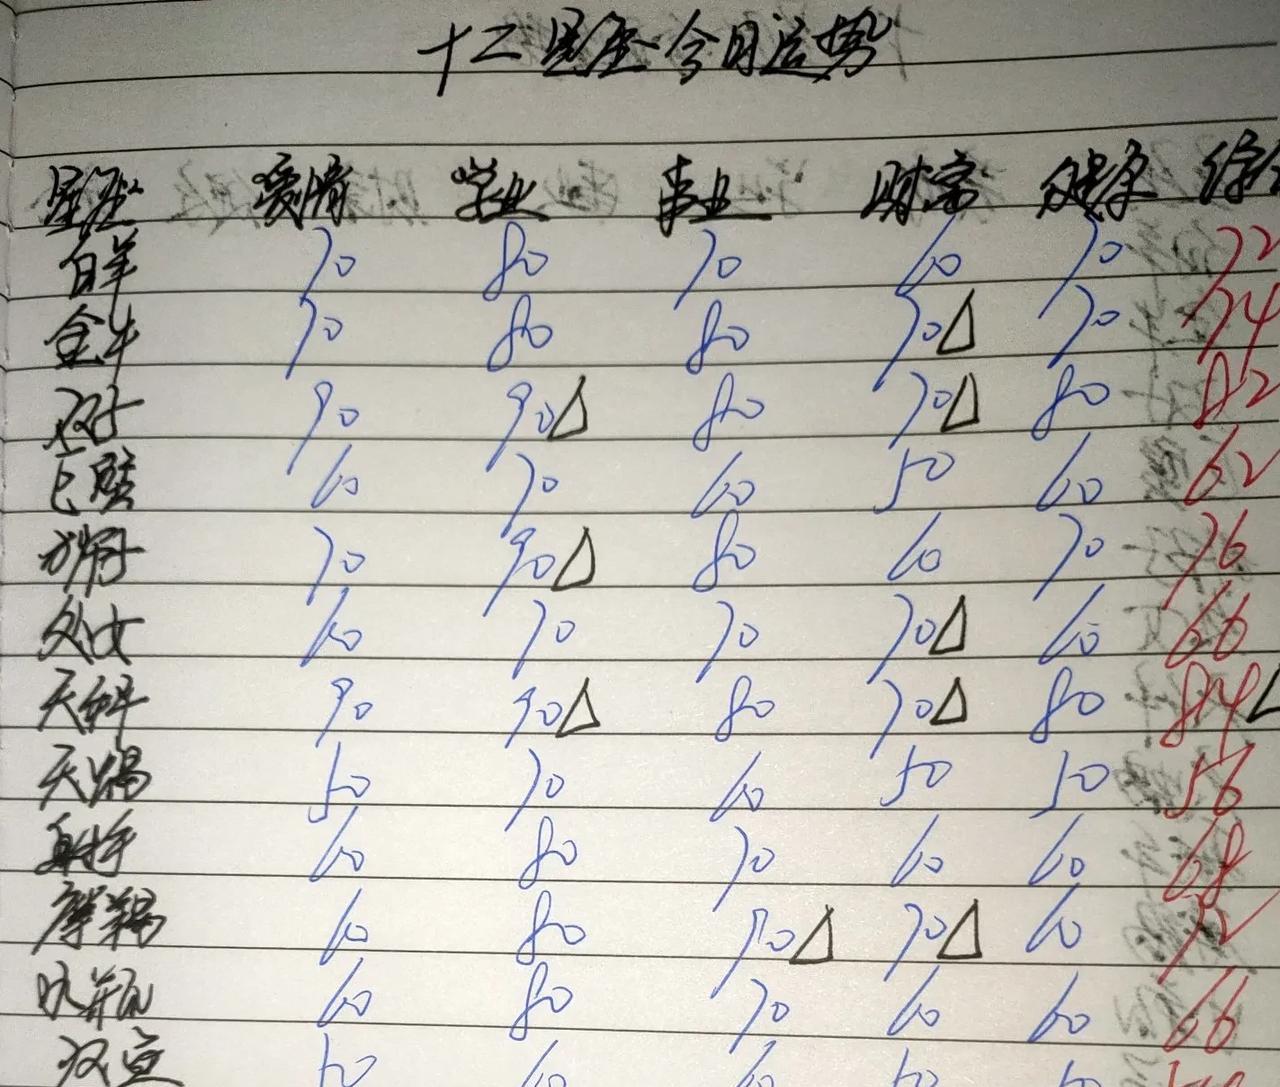 十二星座今日运势
星座 爱情 学业 事业 财富 健康 综合
白羊 70 80 70 60 70 72
金牛 70 80 80 70△ 70 74
双子 90 90△ 80 70△ 80 82
巨蟹 60 70 60 50 60 62
狮子 70 90△ 80 60 70 76
处女 60 70 70 70△ 60 66
天秤 90 90△ 80 70△ 80 84△
天蝎 50 70 60 50 50 56
射手 60 80 70 60 60 68
摩羯 60 80 90△ 70△ 60 72
水瓶 60 80 70 60 60 66
双鱼 50 60 60 50 50